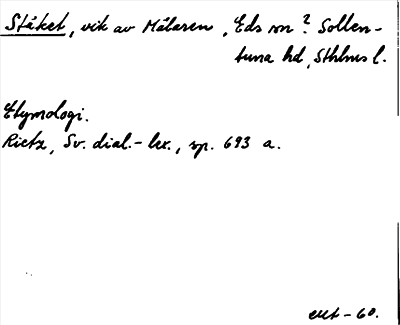 Stäket, vik av Mälaren, Eds sn? Sollen-
tuna hd, Sthlms l.
Etymologi.
Rietz, Sv. dial.-lex., sp. 693 a.
-60.